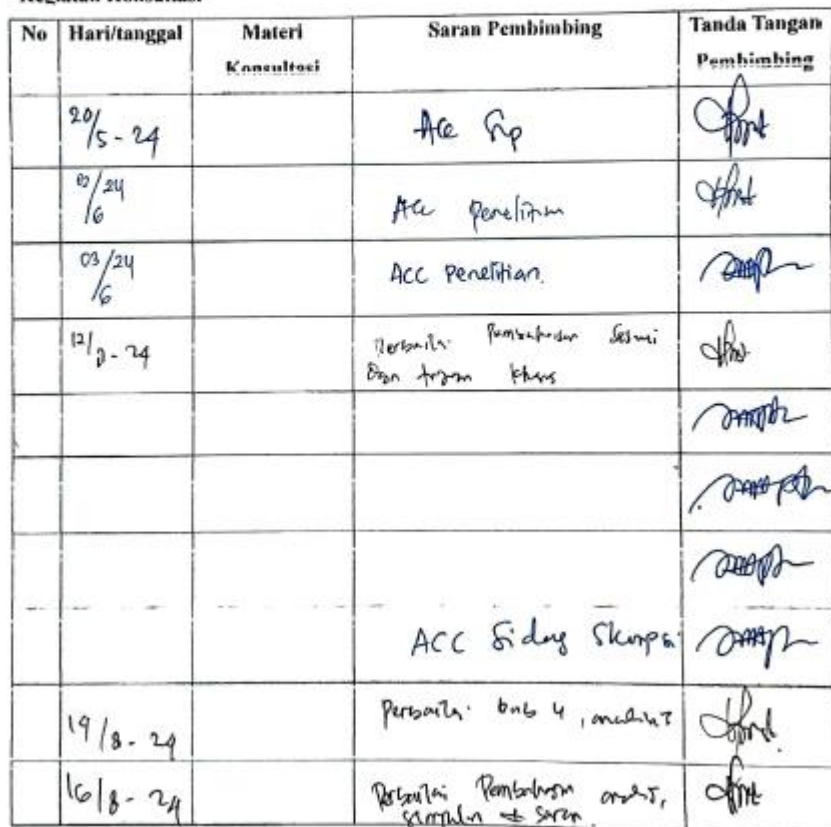 No Hari/tanggal Materi Konsultasi Saran Pembimbing Tanda Tangan Pembimbing
20/5 - 24 Acc
02/24/6 Acc Penelitian
03/24/6 ACC Penelitian.
12/8 - 24 Perbaiki Pembahasan sesuai
Dan tujuan khusus
ACC Sidang Skripsi
19/8 - 24 Perbaiki bab 4, analisis
16/8 - 24 Perbaiki Pembahasan analisis,
simpulan & saran